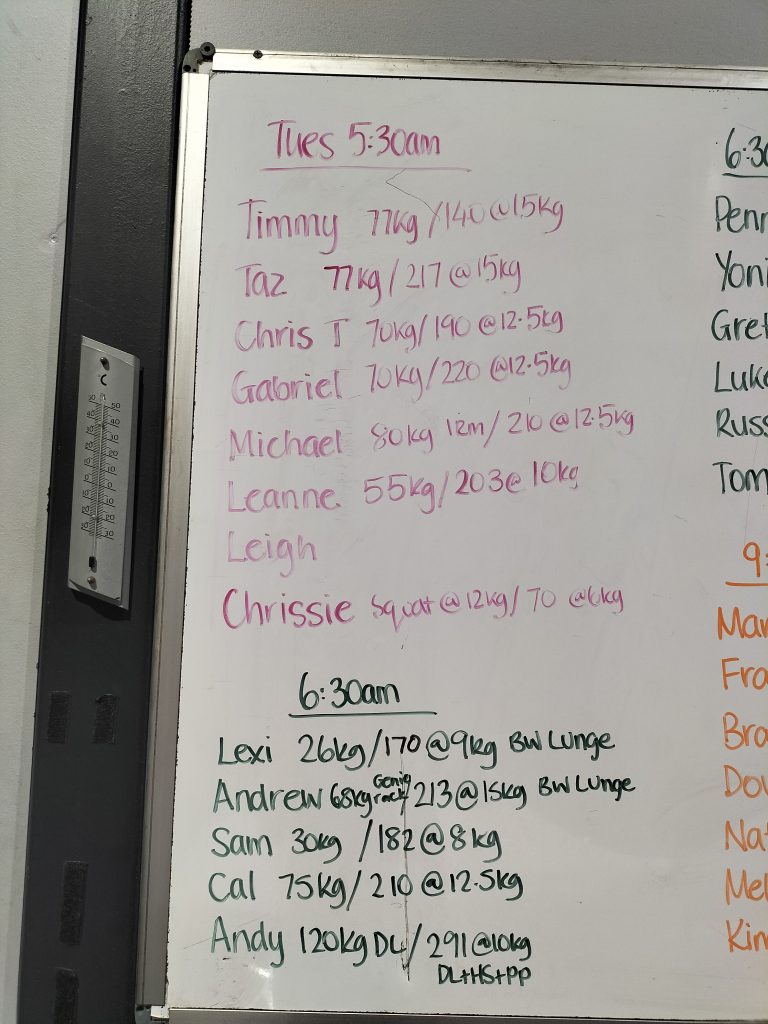 Tues 5:30am
Timmy 77kg/140@15kg
Taz 77kg/217@15kg
Chris T 70kg/190@12.5kg
Gabriel 70kg/220@12.5kg
Michael 80kg 12m/210@12.5kg
Leanne 55kg/203@10kg
Leigh
Chrissie Squat@12kg/70@6kg
6:30am
Lexi 26kg/170@9kg BW Lunge
Andrew 68kg /213@15kg BW Lunge
Sam 30kg/182@8kg
Cal 75kg/210@12.5kg
Andy 120kg DL/291@10kg
DL+HS+PP
6:30
Penn
Yoni
Gret
Luke
Russ
Tom
9:
Mar
Fra
Bra
Dou
Nat
Mel
Kim
°C